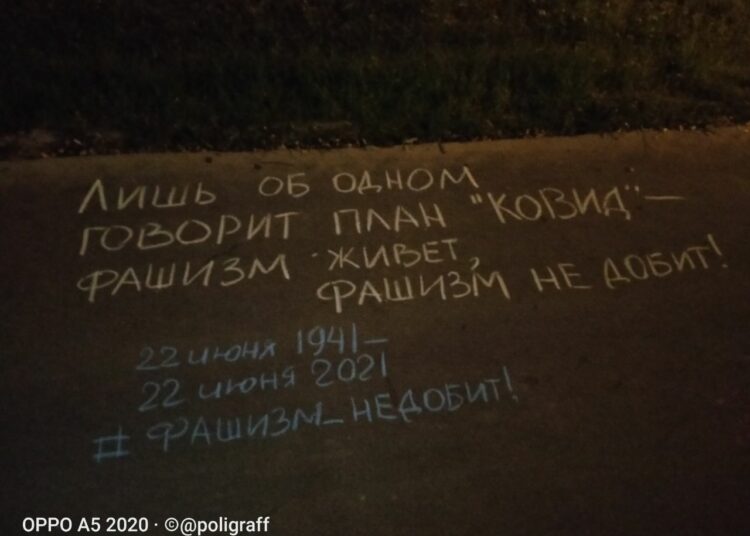 ЛИШЬ ОБ ОДНОМ
ГОВОРИТ ПЛАН "КОВИД"—
ФАШИЗМ ЖИВЕТ,
ФАШИЗМ НЕ ДОБИТ!
22 июня 1941–
22 июня 2021
# ФАШИЗМ_НЕДОБИТ!
OPPO A5 2020 · ©@poligraff